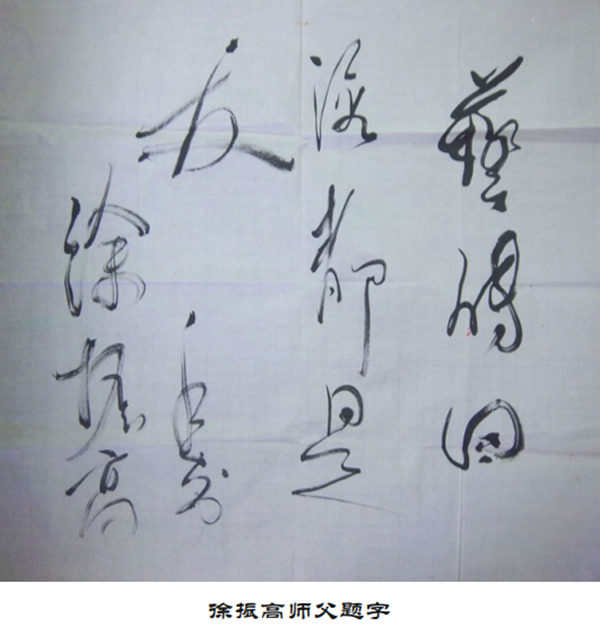 藝傳四
海都是
友
徐振高
徐振高师父题字